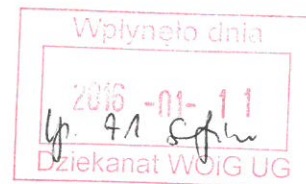 Wpłynęło dnia
2016 -01- 11
Dziekanat WOiG UG